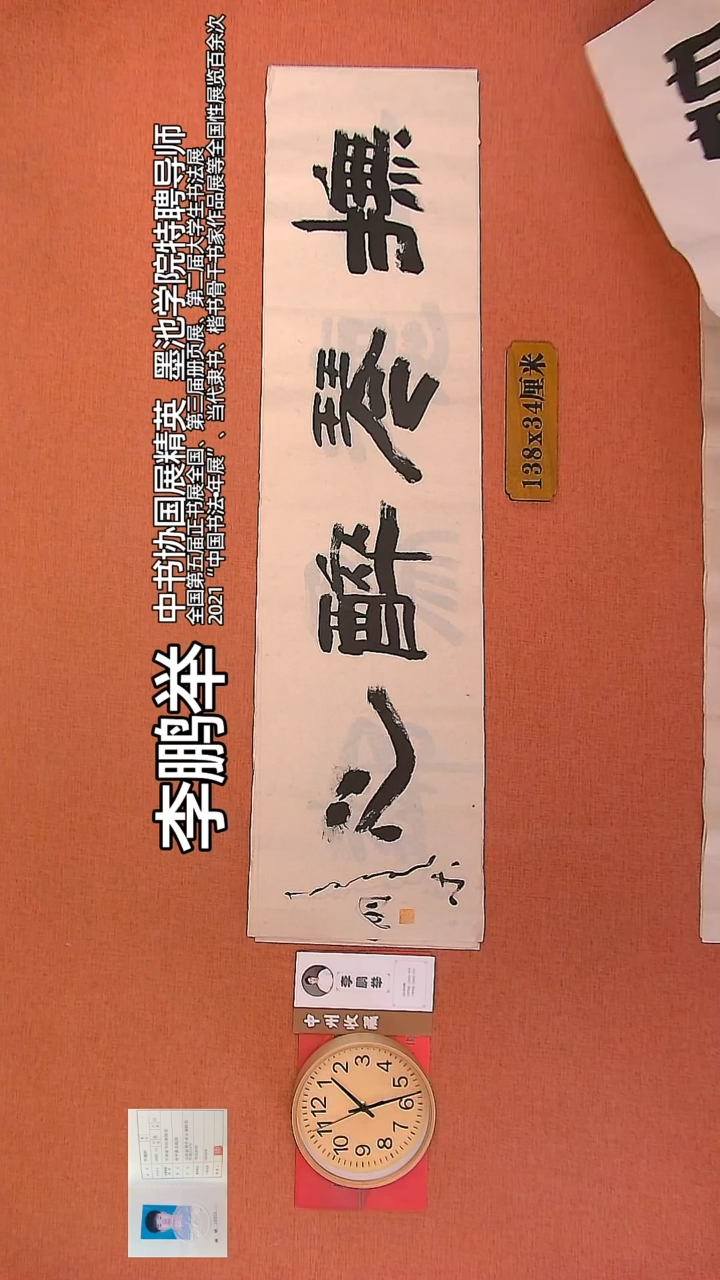 李鹏举
中书协国展精英 墨池学院特聘导师
全国第五届正书展全国、第三届册页展、第二届大学生书法展
2021“中国书法·年展”、当代隶书、楷书骨干书家作品展等全国性展览百余次
撫琴醉心
138x34厘米
李鹏举
中州收藏
12 1 2 3 4 5 6 7 8 9 10 11